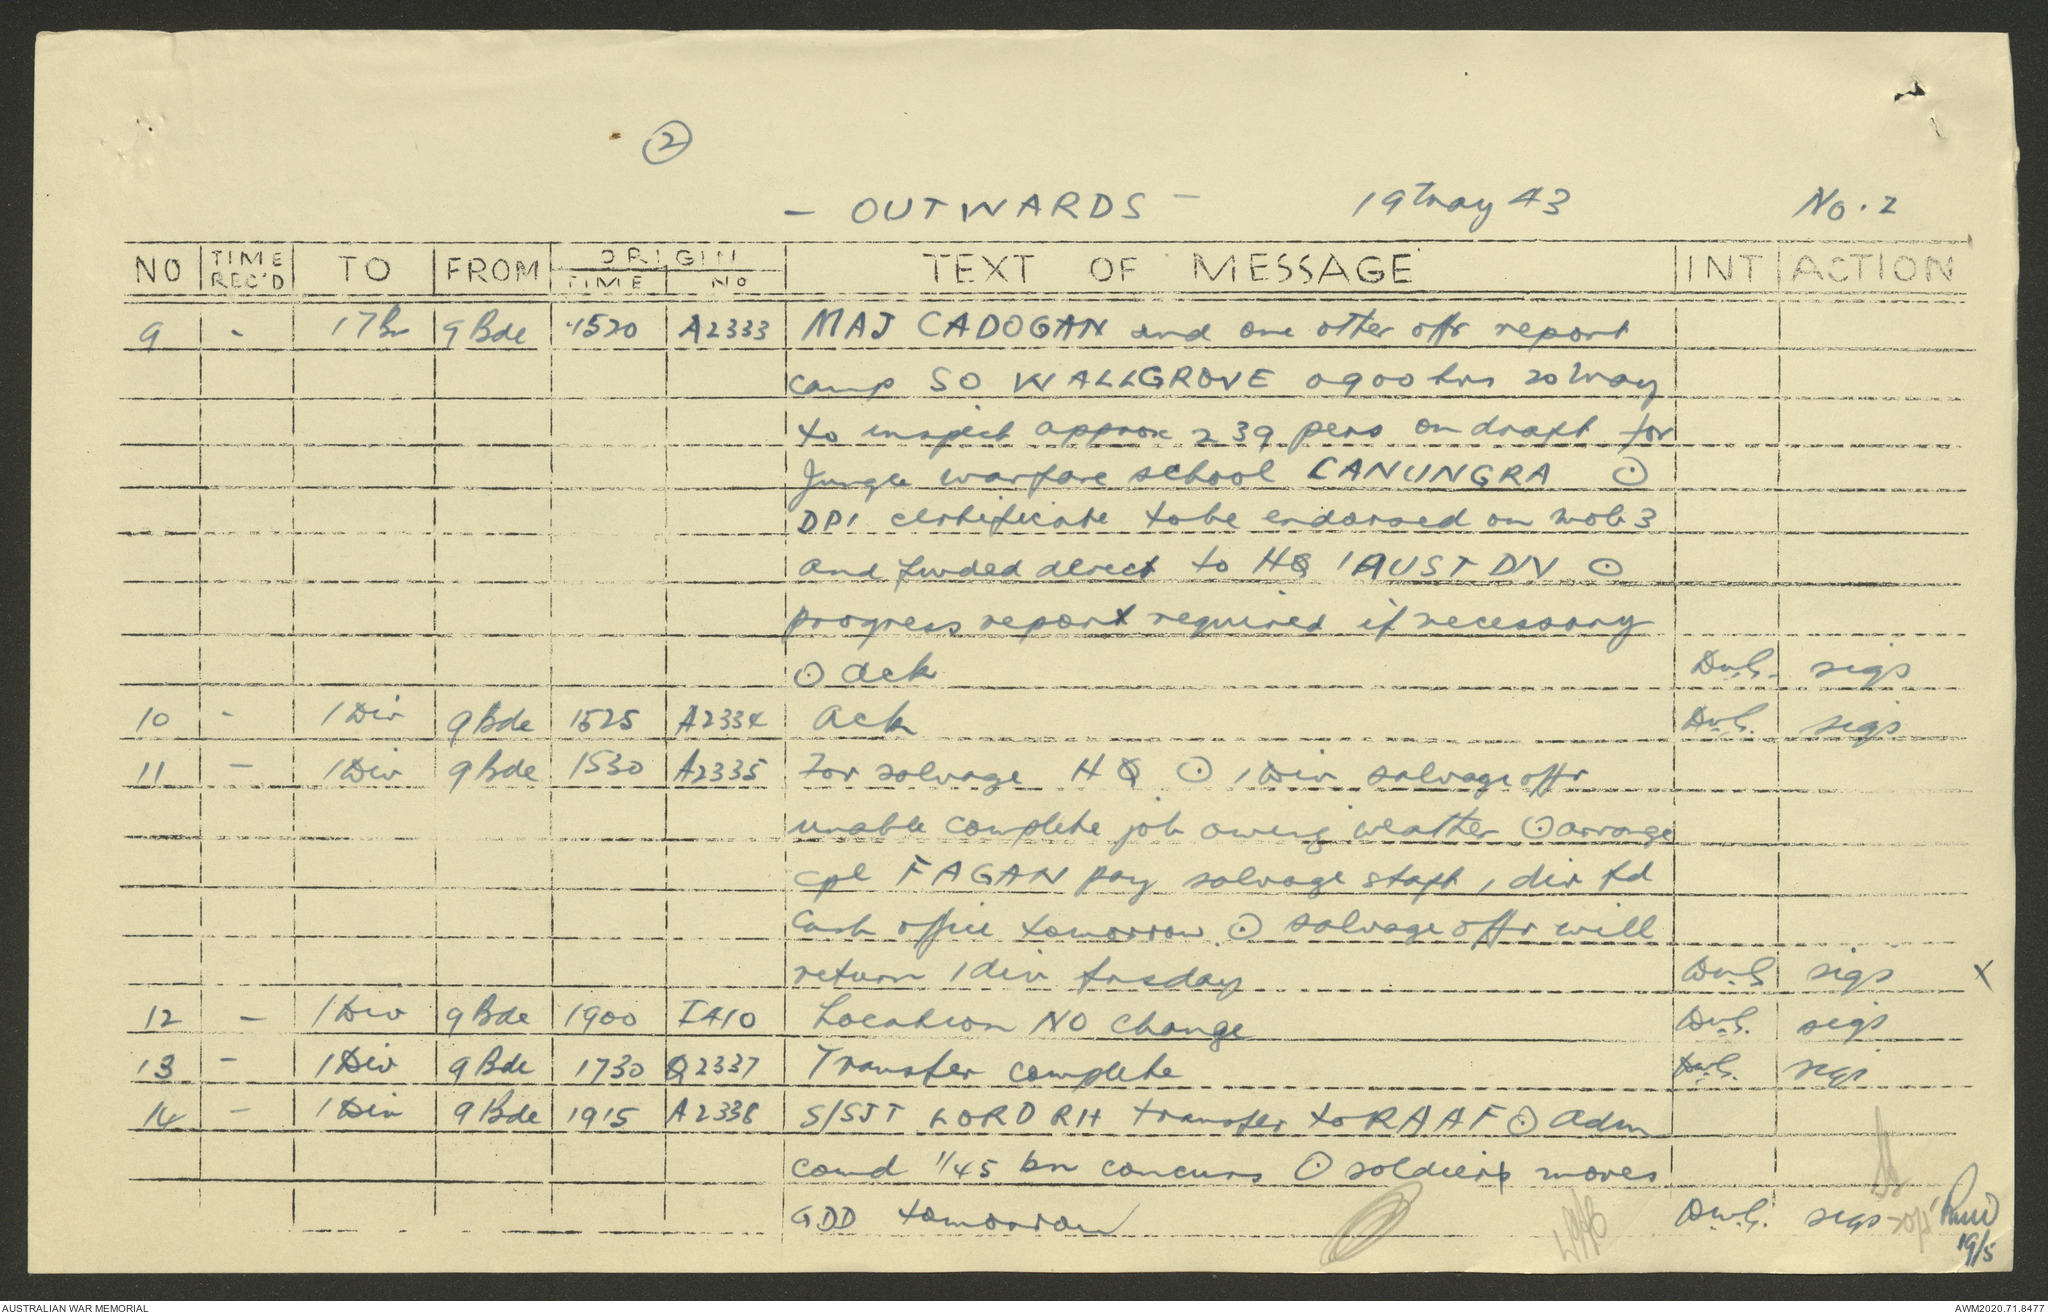 2
- OUTWARDS - 19 May 43 No. 2
NO TIME REC'D TO FROM ORIGIN TIME NO TEXT OF MESSAGE INT ACTION
9 - 17 Bn 9 Bde 1520 A2333 MAJ CADOGAN and one other offr report
camp SO WALLGROVE 0900 hrs 20 May
to inspect approx 239 pers on draft for
Jungle warfare school CANUNGRA ⊙
DP1 certificate to be endorsed on mob 3
and fwded direct to HQ 1 AUST DIV ⊙
progress report required if necessary
⊙ ack D.W.G. sigs
10 - 1 Div 9 Bde 1525 A2334 Ack D.W.G. sigs
11 - 1 Div 9 Bde 1530 A2335 For salvage HQ ⊙ 1 Div salvage offr
unable complete job owing weather ⊙ arrange
cpl FAGAN pay salvage staff 1 div fd
cash office tomorrow ⊙ salvage offr will
return 1 div D.W.G. sigs X
12 - 1 Div 9 Bde 1900 I410 Location NO change D.W.G. sigs
13 - 1 Div 9 Bde 1730 Q2337 Transfer complete D.W.G. sigs
14 - 1 Div 9 Bde 1915 A2338 S/SJT LORD RH transfer to RAAF ⊙ Adm
comd 1/45 bn concurs ⊙ soldier moves
GDD tomorrow D.W.G. sigs
19/5
AUSTRALIAN WAR MEMORIAL AWM2020.71.8477